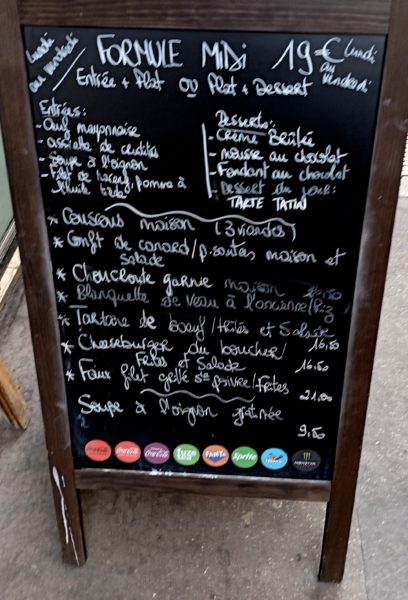 Lundi au vendredi
FORMULE MIDI 19€ Lundi au vendredi
Entrée + Plat OU Plat + Dessert
Entrées:
- Oeuf mayonnaise
- assiette de crudités
- Soupe à l'oignon
- Filet de hareng pomme à l'huile
Desserts:
- Crème Brûlée
- mousse au chocolat
- Fondant au chocolat
- Dessert du jour:
TARTE TATIN
* Couscous maison (3 viandes)
* Confit de canard/p. sautées maison et
salade
* Choucroute garnie maison
* Blanquette de veau à l'ancienne/Riz
* Tartare de boeuf/frites et Salade
* Cheeseburger du boucher/ 16,50
Frites et Salade
* Faux filet grillé sce poivre/frites 16,50
21,00
Soupe à l'oignon gratinée
9,50
Coca-Cola
fuze tea
FANTA
Sprite
MONSTER